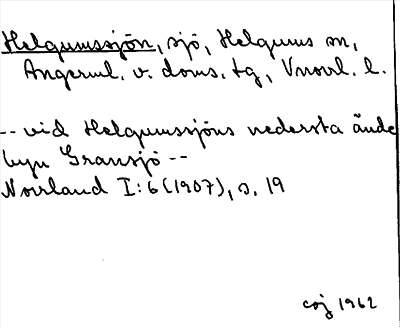 Helgumssjön, sjö, Helgums sn,
Ångerml. v. doms. tg, Vnorrl. l.
-- vid Helgumssjöns nedersta ände
byn Gransjö --
Norrland I:6 (1907), s. 19
coj 1962